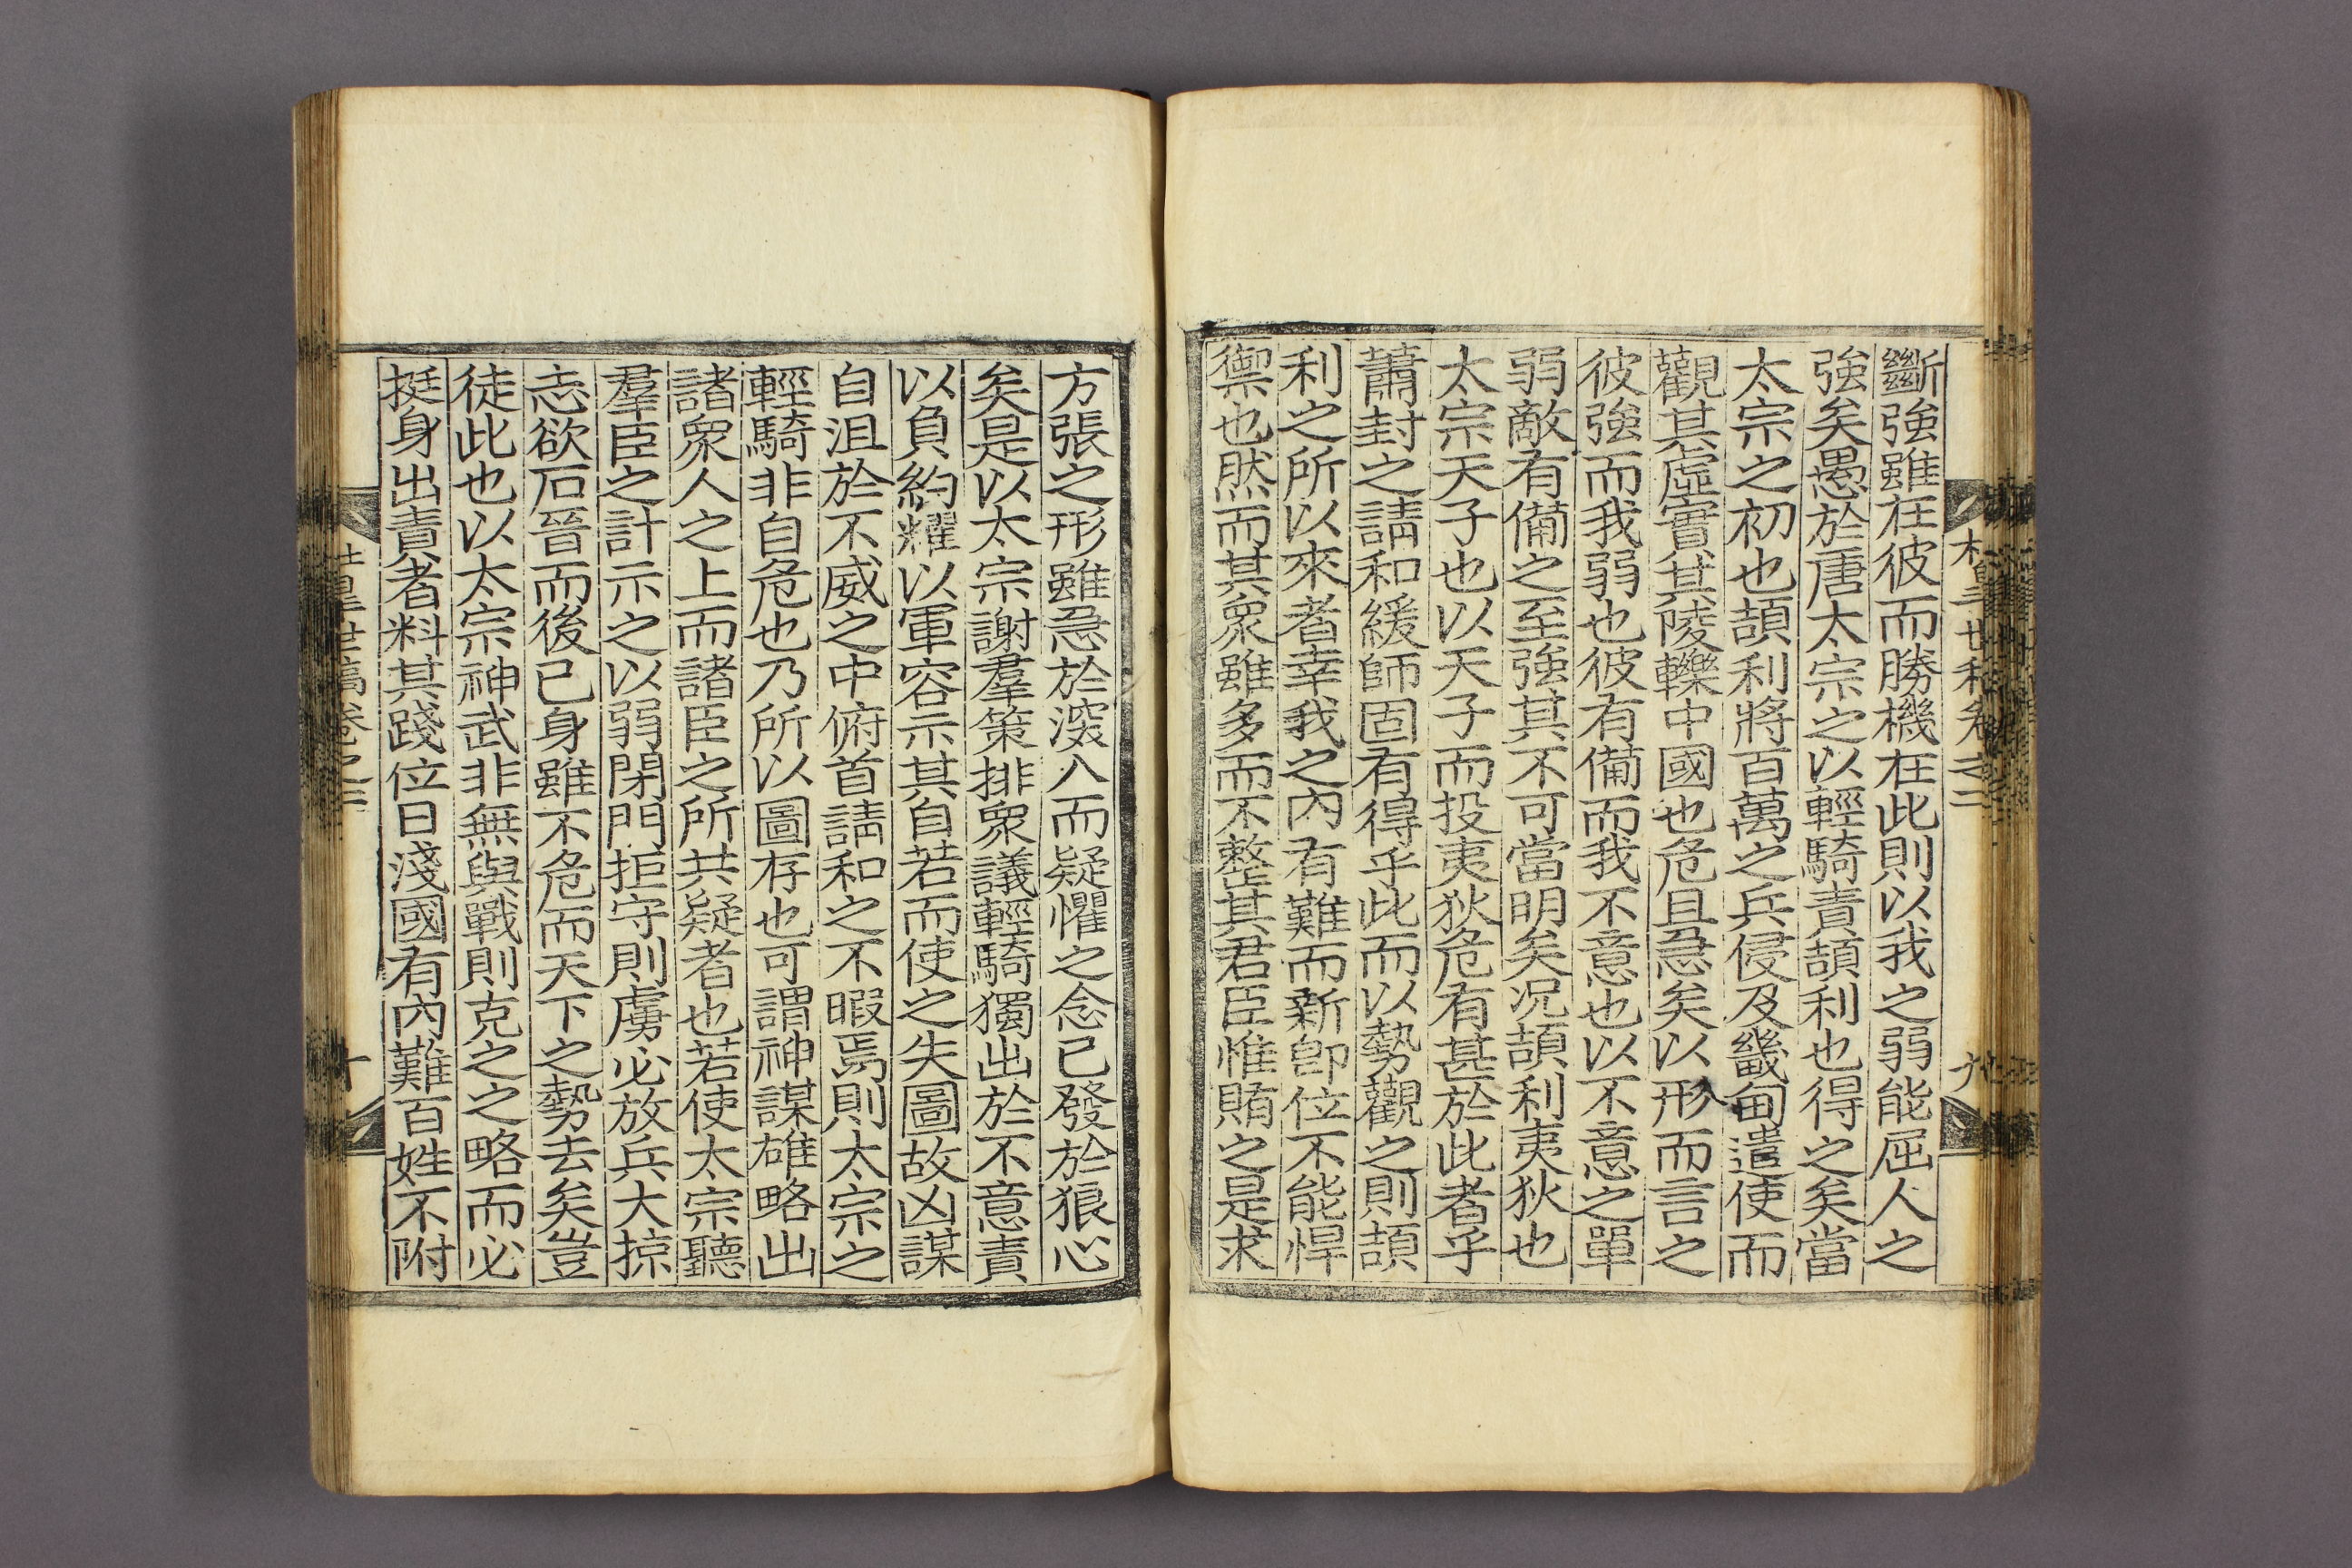 斷強雖在彼而勝機在此則以我之弱能屈人之
強矣愚於唐太宗之以輕騎責頡利也得之矣當
太宗之初也頡利將百萬之兵侵及畿甸遣使而
觀其虛實其陵轢中國也危且急矣以形而言之
彼強而我弱也彼有備而我不意也以不意之單
弱敵有備之至強其不可當明矣况頡利夷狄也
太宗天子也以天子而投夷狄危有甚於此者乎
蕭封之請和緩師固有得乎此而以勢觀之則頡
利之所以來者幸我之內有難而新卽位不能悍
禦也然而其衆雖多而不整其君臣惟賄之是求
方張之形雖急於深入而疑懼之念已發於狼心
矣是以太宗謝羣策排衆議輕騎獨出於不意責
以負約耀以軍容示其自若而使之失圖故凶謀
自沮於不威之中俯首請和之不暇焉則太宗之
輕騎非自危也乃所以圖存也可謂神謀雄略出
諸衆人之上而諸臣之所共疑者也若使太宗聽
羣臣之計示之以弱閉門拒守則虜必放兵大掠
志欲石晉而後已身雖不危而天下之勢去矣豈
徒此也以太宗神武非無與戰則克之之略而必
挺身出責者料其踐位日淺國有內難百姓不附
世稿卷之二
十